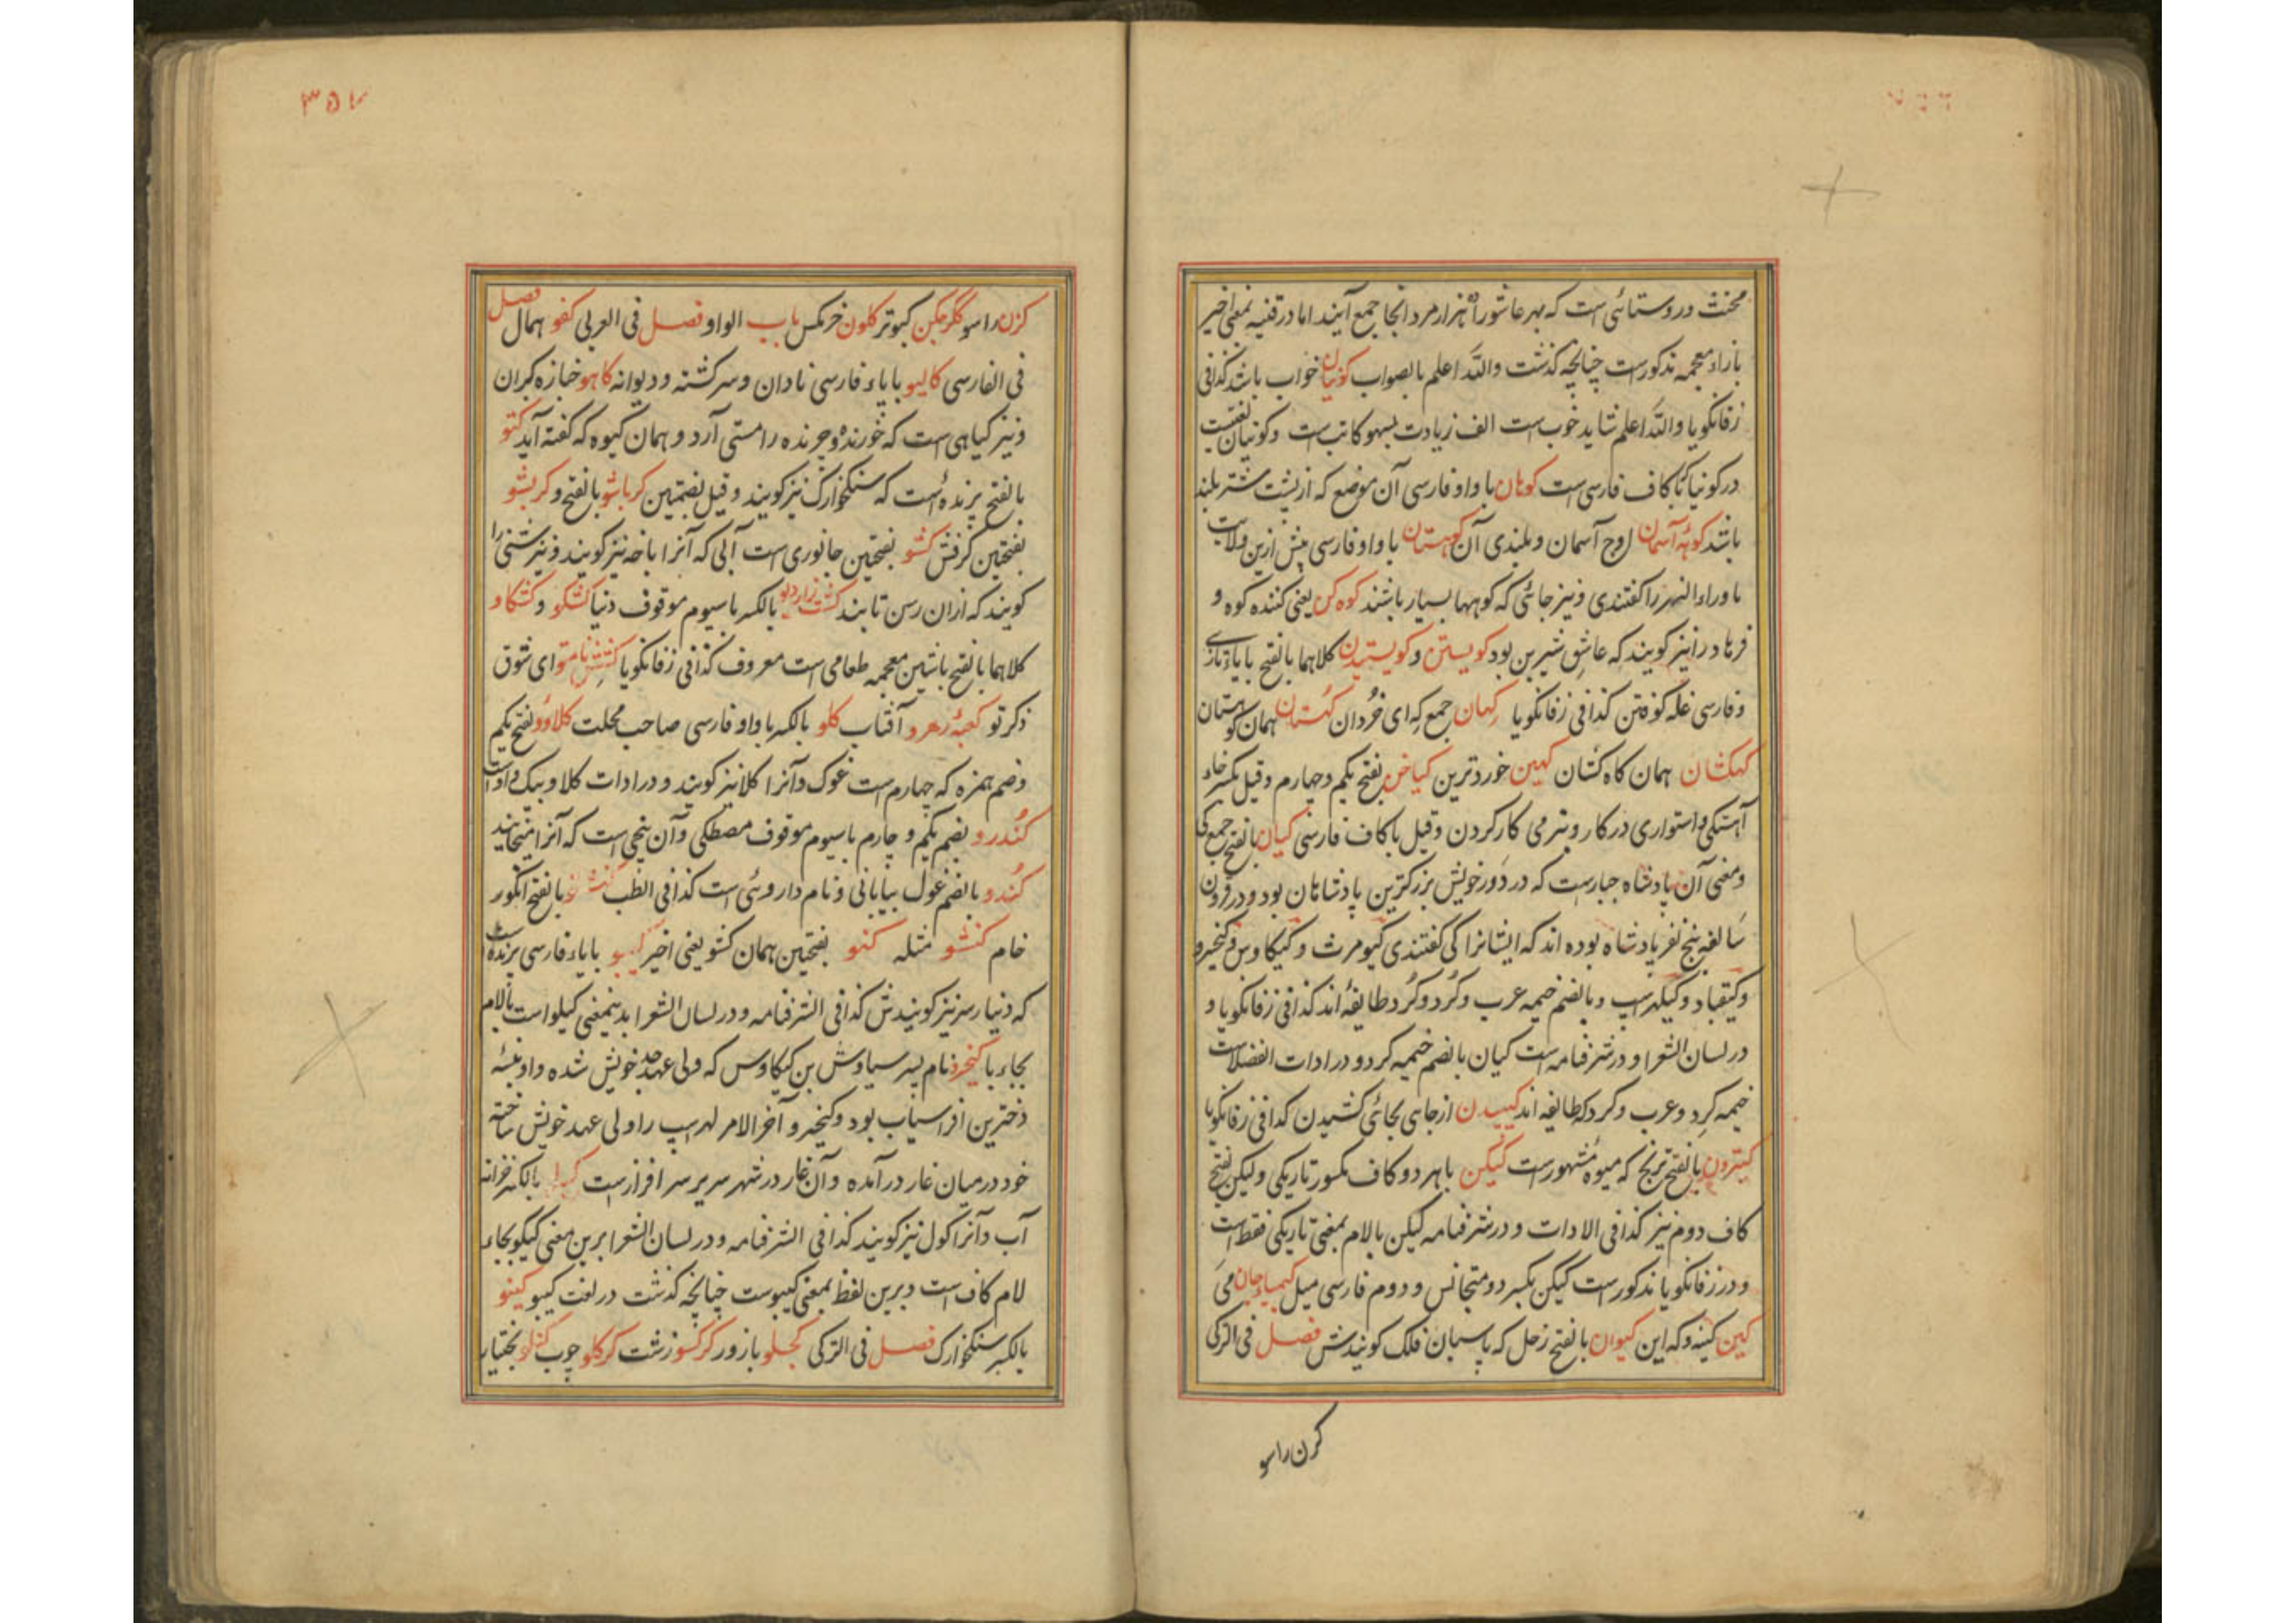 مخنث در روستائی است که بهر عاشورا هزار مرد آنجا جمع آیند اما در قنیه بمعنی اخیر
بازاء معجمه مذکورست چنانچه گذشت والله اعلم بالصواب کونیان خواب باشد کذا فی
زفانگویا والله اعلم شاید خوب است الف زیادت بسهو کاتب است و کونیان لغتیست
در کونیا تا کاف فارسی است کوهان با واو فارسی آن موضع که از پشت شتر بلند
باشد کوهٔ آسمان اوج آسمان و بلندی آن کوهستان با واو فارسی پیش ازین ولایت
ماوراء النهر را گفتندی و نیز جائی که کوهها بسیار باشند کوه کن یعنی کننده کوه و
فرهاد را نیز گویند که عاشق شیرین بود کویستن و کویستیدن کلاهما بالفتح با یاء تازی
و فارسی غله کوفتن کذا فی زفانگویا کهان جمع که ای خردان کهستان همان کوهستان
کهکشان همان کاه کشان کهین خوردترین کیاخن بفتح یکم و چهارم و قیل بکسر خاء
آهستگی و استواری در کار و نرمی کار کردن و قیل با کاف فارسی کیان بالفتح جمع کی
و معنی آن پادشاه جبارست که در دور خویش بزرکترین پادشاهان بود و در قرون
سالفه پنج نفر پادشاه بوده اند که ایشانرا کی گفتندی کیومرث و کیکاوس و کیخسرو
و کیقباد و کیلهراسپ و بالضم خیمه عرب و کرد و کرد طایفهٔ اند کذا فی زفانگویا و
در لسان الشعرا و در شرفنامه است کیان بالضم خیمه کرد و در ادات الفضلاست
خیمه کرد و عرب و کرد که طایفه اند کیبیدن از جای بجائی کشیدن کذا فی زفانگویا
بالفتح ترنج که میوه مشهورست کیکن با هر دو کاف مکسور تاریکی ولیکن بفتح
کاف دوم نیز کذا فی الادات و در شرفنامه کیلن بالام بمعنی تاریکی فقط است
و در زفانگویا مذکورست کیکن بکسر دو متجانس و دوم فارسی میل کیمیاء جان می
کین کینه و که این کیوان بالفتح زحل که پاسبان فلک گویندش فصل فی الترکی
کرن راسو
۳۵۷
کزن راسو کلرجکن کبوتر کلون خرمکس باب الواو فصل فی العربی کفو همال فصل
فی الفارسی کالیو با یاء فارسی نادان و سرکشته و دیوانه کاهو خبازه کبران
و نیز کیاهی است که خورنده و چرنده را مستی آرد و همان کیوه که گفته آید کتو
بالفتح پرنده است که سنگخوارک نیز گویند و قیل بضمتین کرباشو بالفتح و کربشو
بفتحتین کرفش کشو بفتحتین جانوری است آبی که آنرا باخه نیز گویند و نیز شنی را
گویند که ازان رسن تابند بالکسر با سیوم موقوف دنیا کشکو و کشکاو
کلاهما بالفتح با شین معجمه طعامی است معروف کذا فی زفانگویا ای شوق
ذکر تو کعبهٔ رهرو آفتاب کلو بالکسر با واو فارسی صاحب محلت کلاؤو بفتح یکم
و ضم همزه که چهارم است غوک و آنرا کلا نیز گویند و در ادات کلاو بیک واو است
کندرو بضم یکم و چارم با سیوم موقوف مصطکی و آن بیخی است که آنرا میخایند
کندو بالضم غول بیابانی و نام داروئی است کذا فی الطب بالفتح انکور
خام کنشو مثله کنو بفتحتین همان کشو یعنی اخیر کیبو با یاء فارسی پرنده است
که دنیا رسر نیز گویندش کذا فی الشرفنامه و در لسان الشعرا بدینمعنی کیلو است بالام
بجاء با کیخسرو نام پسر سیاوش بن کیکاوس که ولی عهد جد خویش شده و او نبسهٔ
دخترین افراسیاب بود و کیخسرو آخر الامر لهراسپ را ولی عهد خویش ساخته
خود در میان غار در آمده و آن غار در شهر سریر سر افرازست بالکسر خزانه
آب و آنرا کول نیز گویند کذا فی الشرفنامه و در لسان الشعرا برین معنی کیکو بجاء
لام کاف است و برین لفظ بمعنی کیبوست چنانچه گذشت در لغت کیبو کینو
بالکسر سنگخوارک فصل فی الترکی کجلو بازور کرکسو زشت کرکلو چوب کنلو بختیار